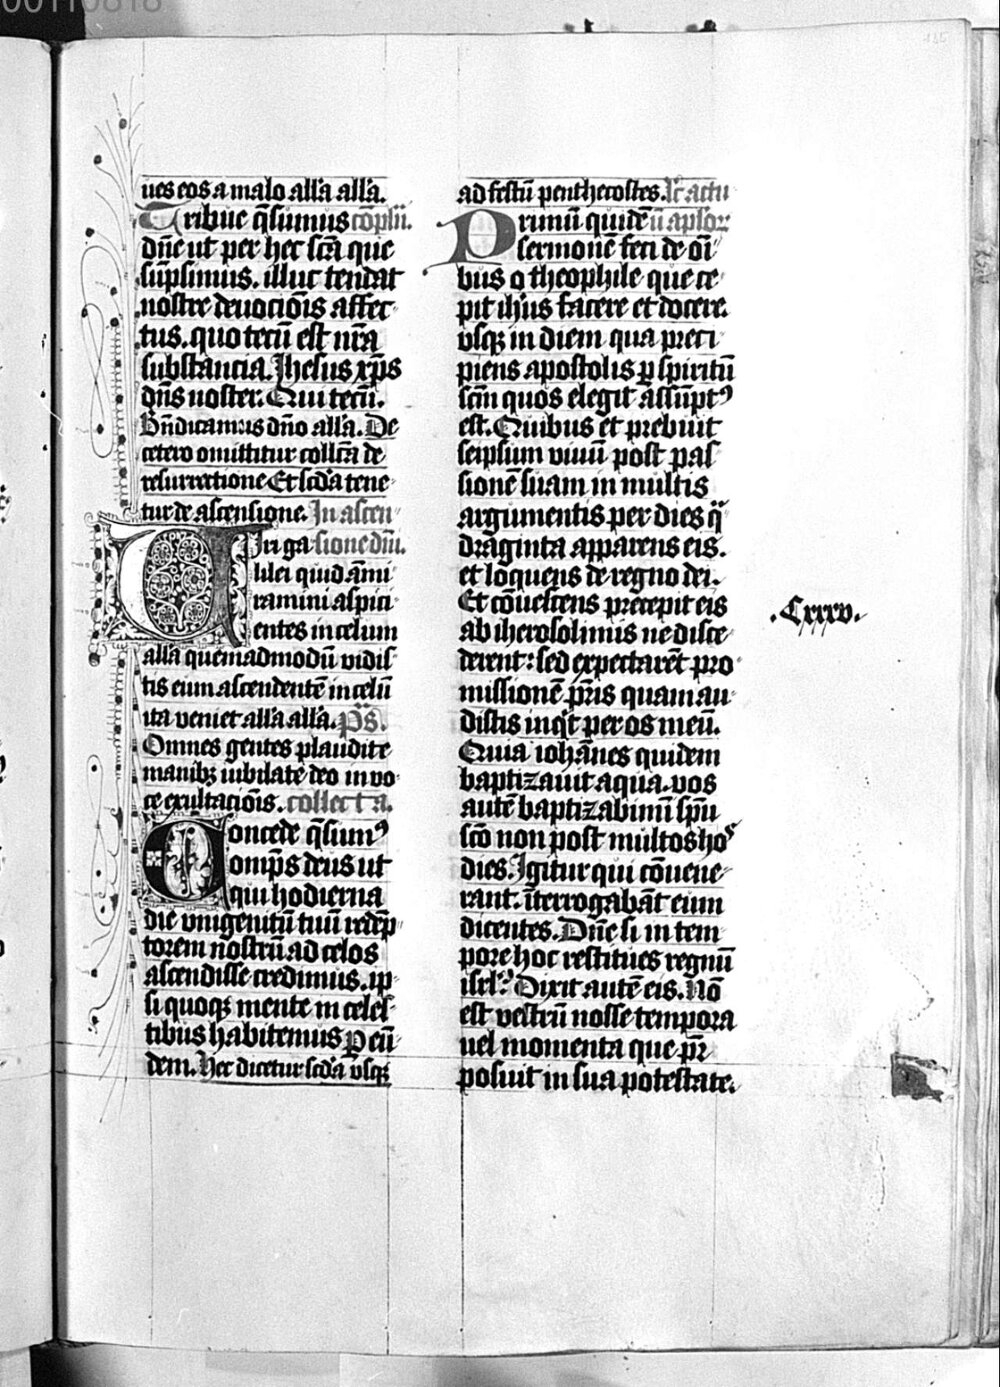 00110818
135
ues eos a malo alľa alľa.
Tribue q̄sumus cōpłň.
dn̄e ut per hec sc̄a que
sūpsimus. illuc tendat
nostre deuociōis affec-
tus. quo tecū est nr̄a
substancia. Jhesus xp̄s
dn̄s noster. Qui tecū.
Bn̄dicamus dn̄o alľa. De
cetero omittitur collc̄a de
resurrectione Et sc̄d̄a tene-
tur de ascensione. In ascen-
Uiri ga- sione dn̄i.
lilei quid āmi-
ramini aspici-
entes in celum
alľa quemadmodū vidis-
tis eum ascendentē in celū
ita veniet alľa alľa. p̄s̄.
Omnes gentes plaudite
manibꝫ iubilate deo in vo-
ce exultaciōis. collecta.
Concede q̄sumꝰ
omp̄s deus ut
qui hodierna
die vnigenitū tuū redēp-
torem nostrū ad celos
ascendisse credimus. ip-
si quoqꝫ mente in celes-
tibus habitemus P eū-
dem. Hec dicetur sc̄d̄a vsqꝫ
ad festū penthecostes. Lc̄ actu-
Primū quidē ū aplōꝝ
sermonē feci de oī-
bus o theophile que ce-
pit ih̄us facere et docere.
vsqꝫ in diem qua preci-
piens apostolis ꝑ spiritū
scm̄ quos elegit assūptꝰ
est. Quibus et prebuit
seipsum viuū post pas-
sionē suam in multis
argumentis per dies q̈-
draginta apparens eis.
et loquens de regno dei.
Et cōuescens precepit eis
ab iherosolimis ne disce-
derent: sed expectarēt pro-
missionē pr̄is quam au-
distis inqͥt per os meū.
Quia iohānes quidem
baptizauit aqua. vos
autē baptizabimī spū
sc̄o non post multos hoˢ
dies. Igitur qui cōuene-
rant. īterrogabāt eum
dicentes. Dn̄e si in tem-
pore hoc restitues regnū
isrl̄? Dixit autē eis. Nō
est vestrū nosse tempora
uel momenta que pr̄
posuit in sua potestate.
.Cxxxv.